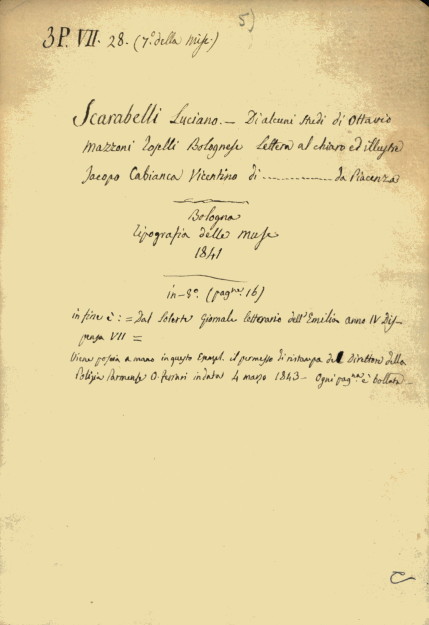 5)
3P. VII. 28. (7.° della Mise)
Scarabelli Luciano. — Di alcuni studi di Ottavio
Mazzoni Toselli Bolognese Lettera al chiaro ed illustre
Jacopo Cabianca Vicentino di ———— da Piacenza
Bologna
Tipografia delle Muse
1841
in-8.° (pag.ne 16)
in fine è: = Dal Solerte Giornale letterario dell'Emilia anno IV Dis-
pensa VII =
Viene poscia a mano in questo Esempl. il permesso di ristampa del Direttore della
Polizia Parmense O. Ferrari in data 4 marzo 1843 — Ogni pag.na è bollata —